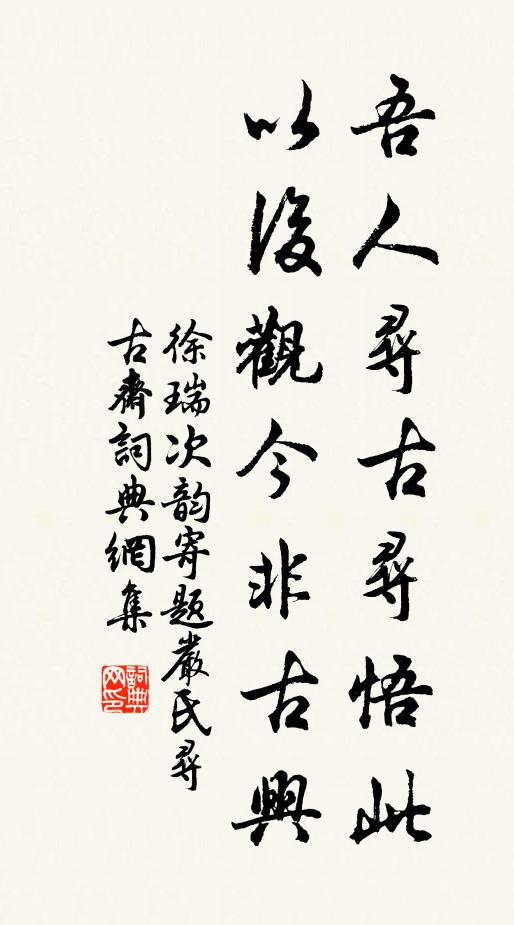 吾人尋古尋悟此
以後觀今非古興
徐瑞次韵寄題嚴氏尋
古齋詞典網集
詞典網印